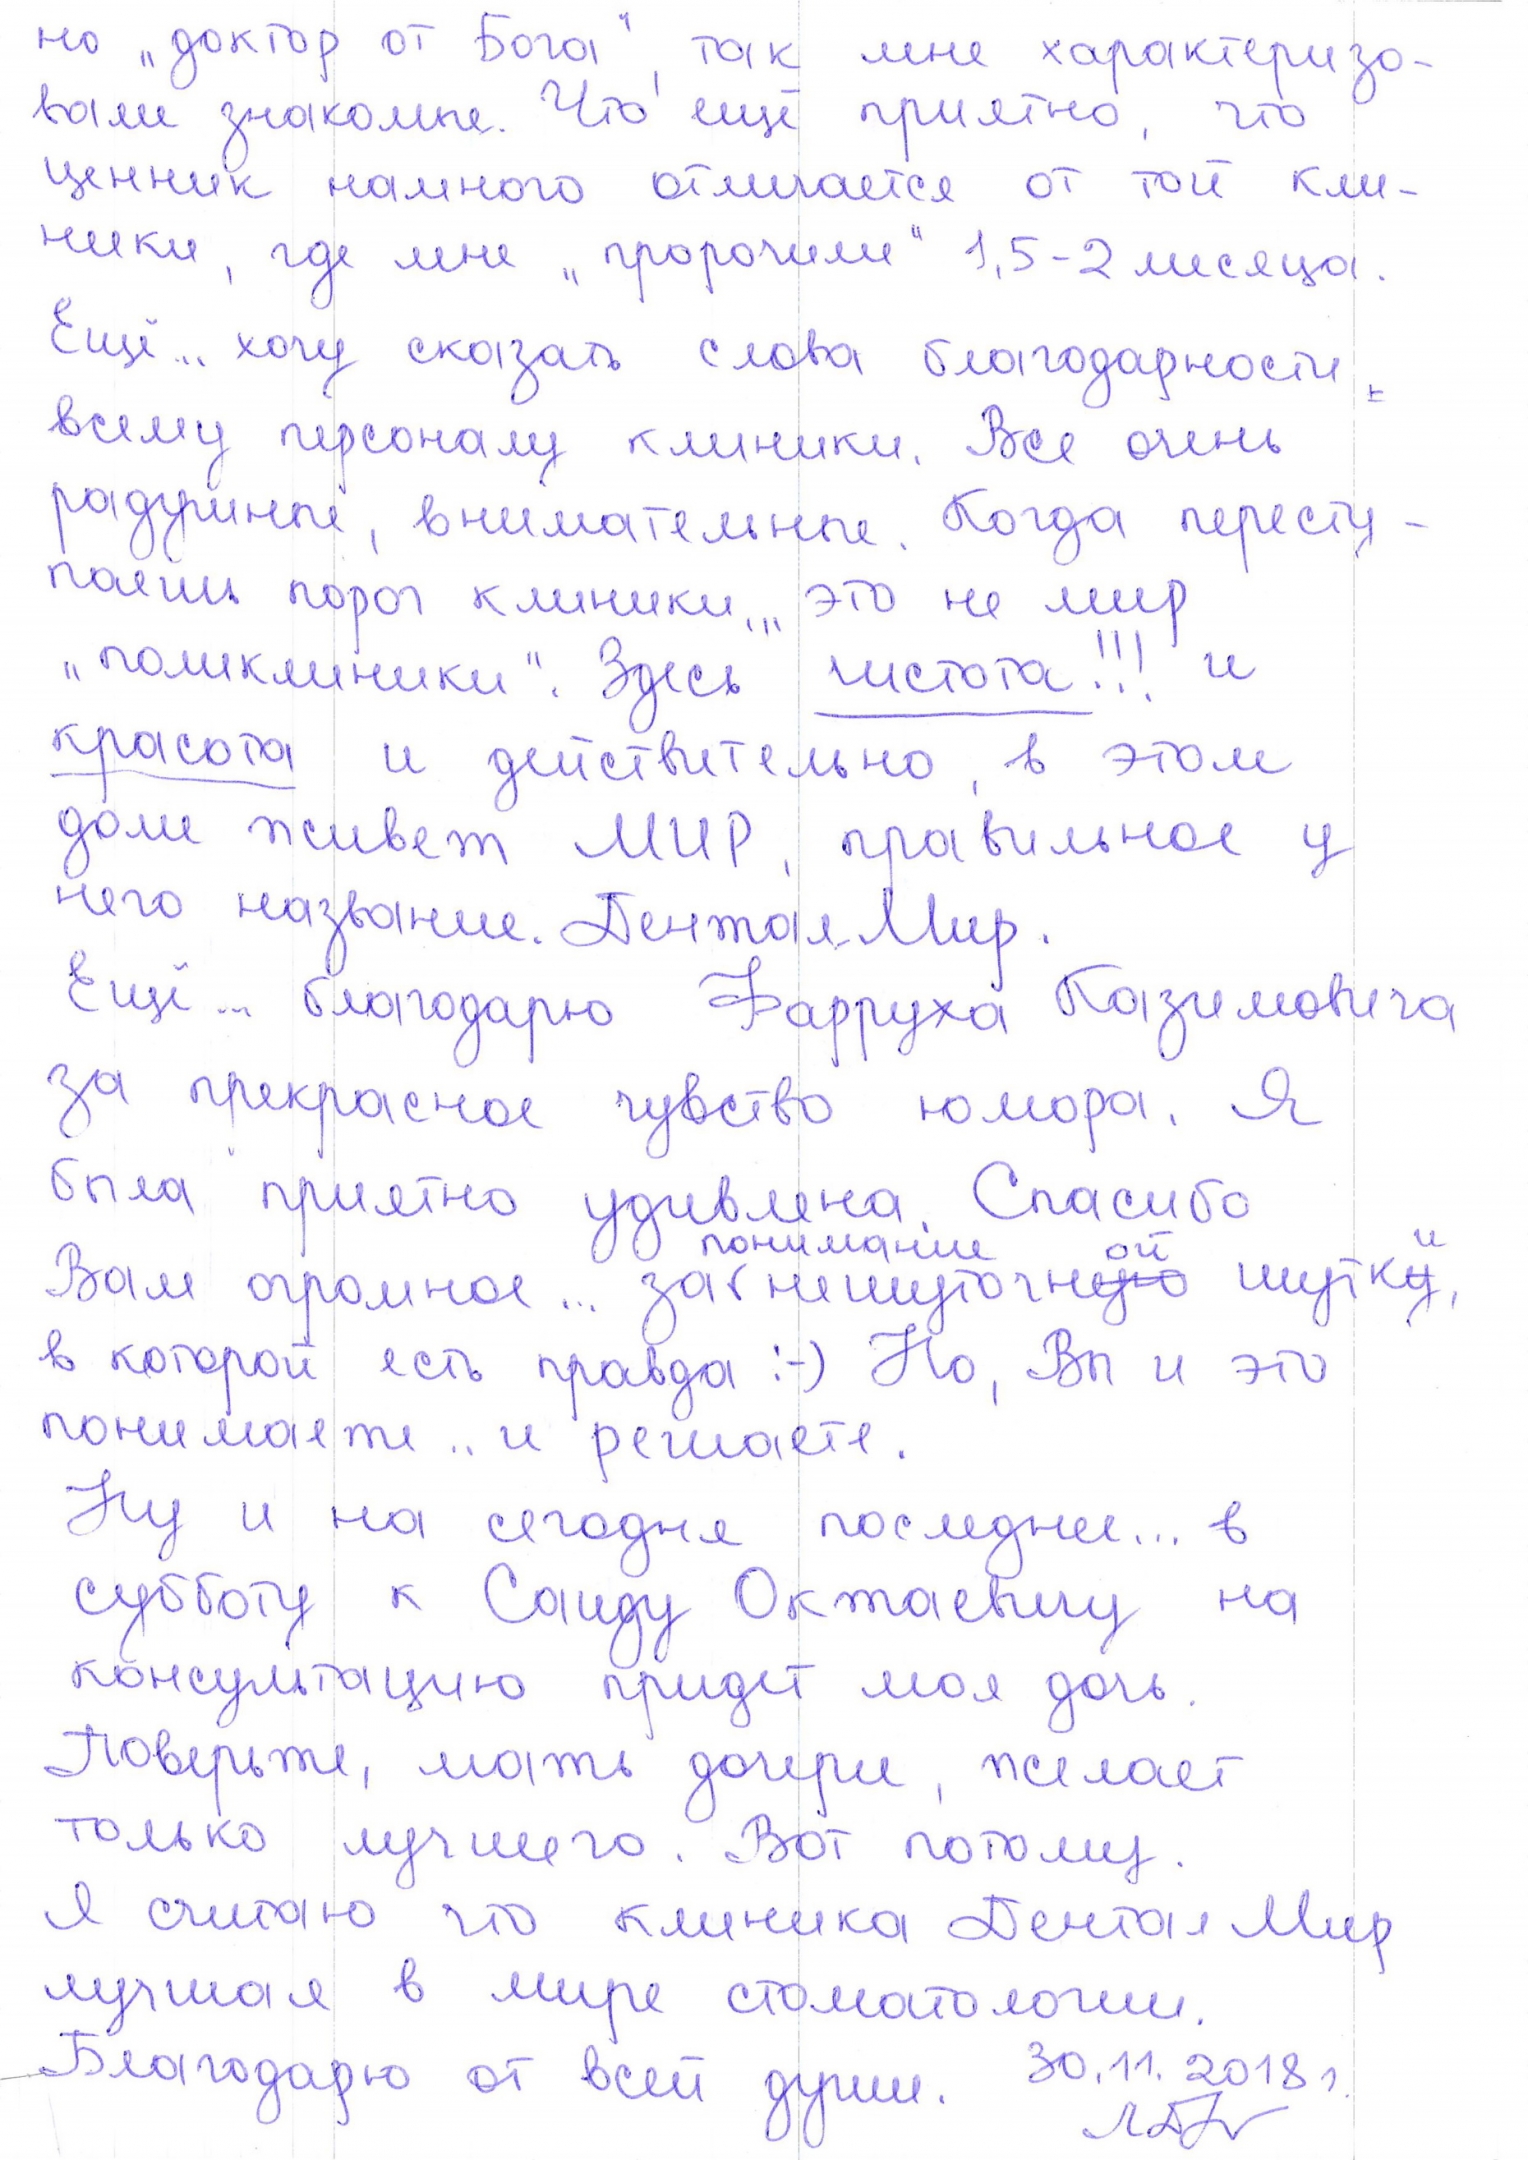 но „доктор от Бога", так мне характеризо-
вали знакомые. Что ещё приятно, что
ценник намного отличается от той кли-
ники, где мне „пророчили" 1,5-2 месяца.
Ещё... хочу сказать слова благодарности
всему персоналу клиники. Все очень
радушные, внимательные. Когда пересту-
паешь порог клиники... это не мир
„поликлиники". Здесь чистота!!! и
красота и действительно, в этом
доме живет МИР, правильное у
него название. Дентал Мир.
Ещё... благодарю Фарруха Казимовича
за прекрасное чувство юмора. Я
была приятно удивлена. Спасибо
Вам огромное... за понимание нешуточной шутки,
в которой есть правда :-) Но, Вы и это
понимаете .. и решаете.
Ну и на сегодня последнее... в
субботу к Саиду Октаевичу на
консультацию придёт моя дочь.
Поверьте, мать дочери, желает
только лучшего. Вот потому.
Я считаю что клиника Дентал Мир
лучшая в мире стоматологии.
Благодарю от всей души. 30.11.2018г.